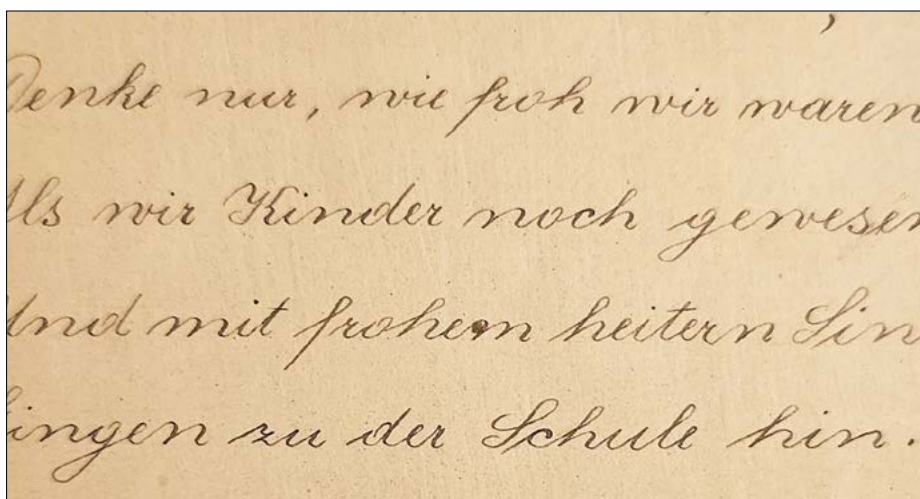 Denke nur, wie froh wir waren
Als wir Kinder noch gewesen
Und mit frohem heitern Sin
gingen zu der Schule hin.